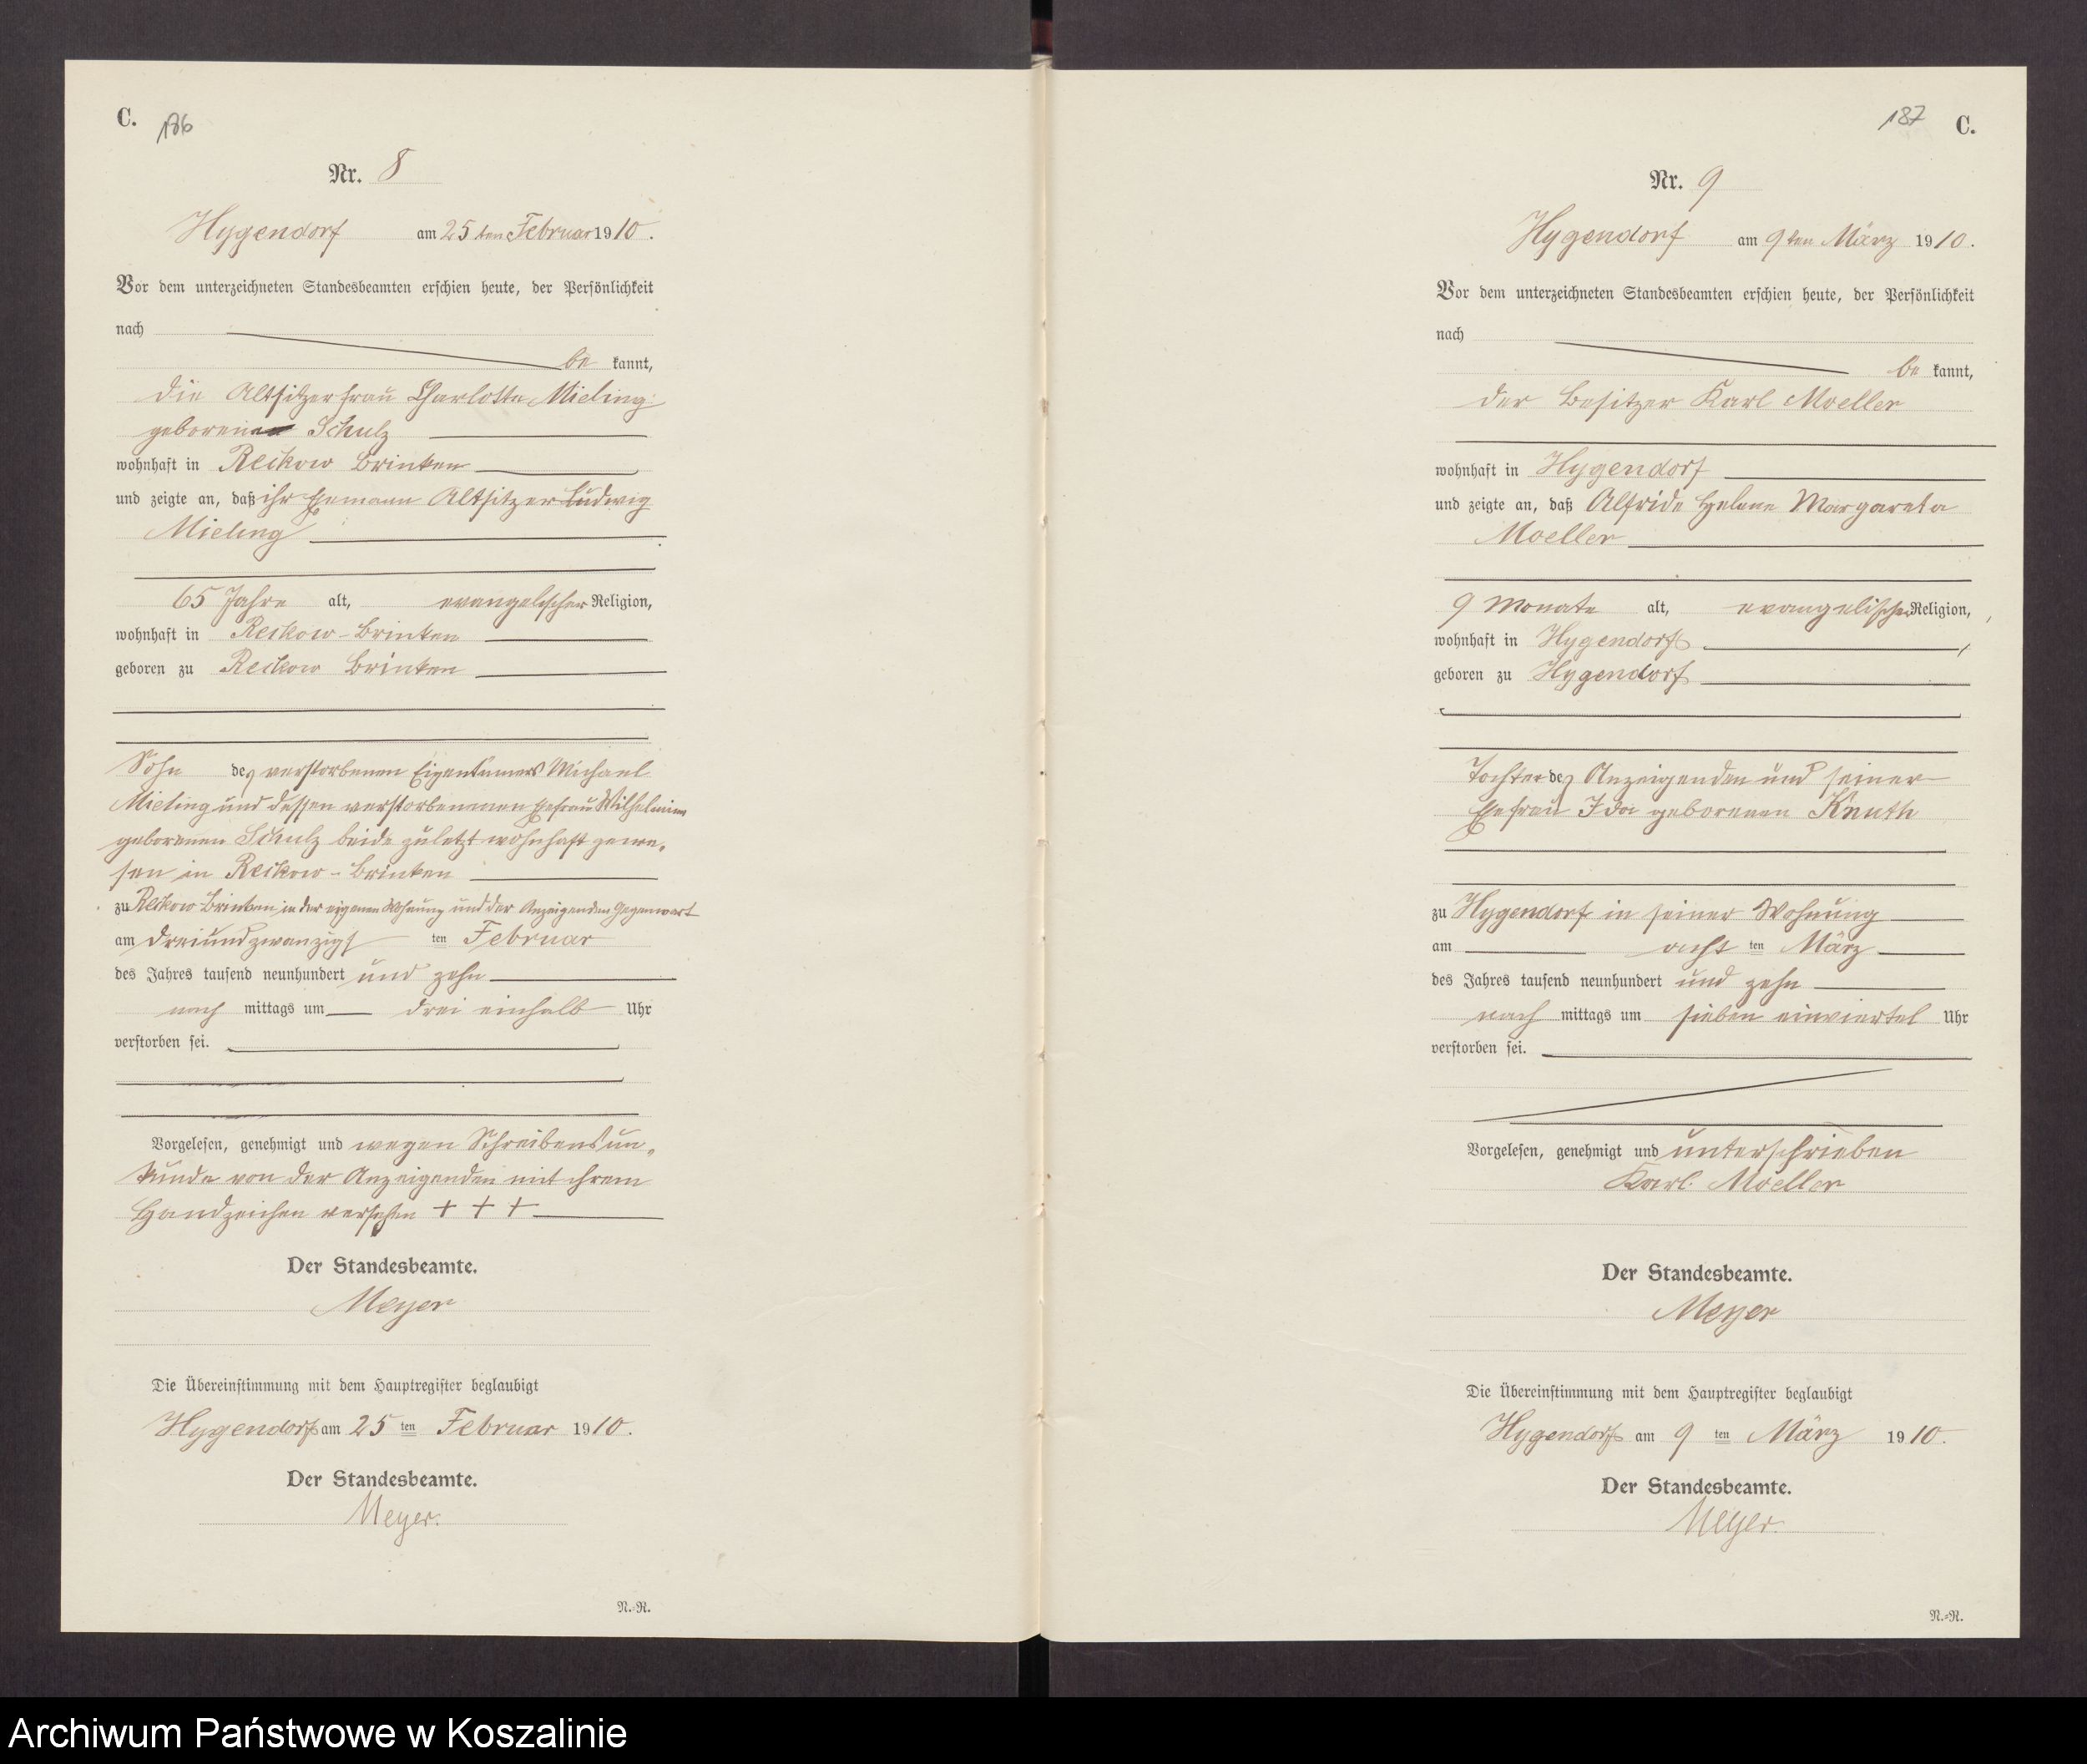 C. 186
Nr. 8
Hygendorf am 25 ten Februar 1910.
Vor dem unterzeichneten Standesbeamten erschien heute, der Persönlichkeit
nach
be kannt,
die Altsitzerfrau Charlotte Mieling
geborene Schulz
wohnhaft in Reckow Brinken
und zeigte an, daß ihr Ehemann Altsitzer Ludwig
Mieling
65 Jahre alt, evangelischer Religion,
wohnhaft in Reckow-Brinken
geboren zu Reckow Brinken
Sohn des verstorbenen Eigentümers Michael
Mieling und dessen verstorbennen Ehefrau Wilhelmine
geborenen Schulz beide zuletzt wohnhaft gewe-
sen in Reckow-Brinken
zu Reckow-Brinken in der eigenen Wohnung und der Anzeigenden Gegenwart
am dreiundzwanzigs ten Februar
des Jahres tausend neunhundert und zehn
nach mittags um drei einhalb Uhr
verstorben sei.
Vorgelesen, genehmigt und wegen Schreibensun-
kunde von der Anzeigenden mit ihrem
Handzeichen versehen + + +
Der Standesbeamte.
Meyer
Die Übereinstimmung mit dem Hauptregister beglaubigt
Hygendorf am 25 ten Februar 1910.
Der Standesbeamte.
Meyer.
N.-R.
187 C.
Nr. 9
Hygendorf am 9 ten März 1910.
Vor dem unterzeichneten Standesbeamten erschien heute, der Persönlichkeit
nach
be kannt,
der Besitzer Karl Moeller
wohnhaft in Hygendorf
und zeigte an, daß Alfride Helene Margareta
Moeller
9 Monate alt, evangelischer Religion,
wohnhaft in Hygendorf
geboren zu Hygendorf
Tochter des Anzeigenden und seiner
Ehefrau Ida geborenen Knuth
zu Hygendorf in seiner Wohnung
am acht ten März
des Jahres tausend neunhundert und zehn
nach mittags um sieben einviertel Uhr
verstorben sei.
Vorgelesen, genehmigt und unterschrieben
Karl Moeller
Der Standesbeamte.
Meyer
Die Übereinstimmung mit dem Hauptregister beglaubigt
Hygendorf am 9 ten März 1910.
Der Standesbeamte.
Meyer.
N.-R.
Archiwum Państwowe w Koszalinie